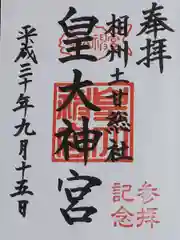 奉拝
相州土甘総社
皇大神宮
平成三十年九月十五日
参拝
記念